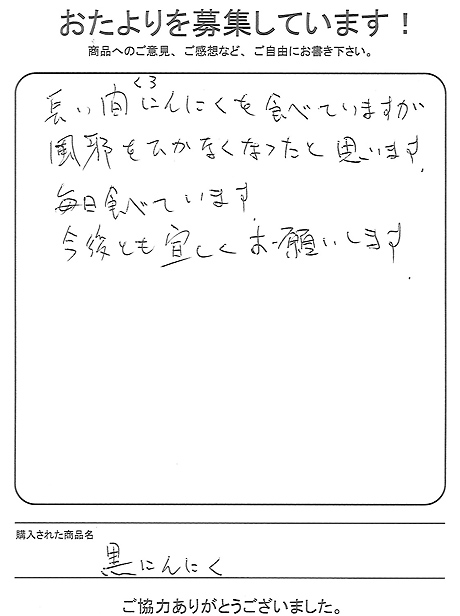 おたよりを募集しています！
商品へのご意見、ご感想など、ご自由にお書き下さい。
くろ
長い間にんにくを食べていますが
風邪をひかなくなったと思います。
毎日食べています。
今後とも宜しくお願いします。
購入された商品名
黒にんにく
ご協力ありがとうございました。